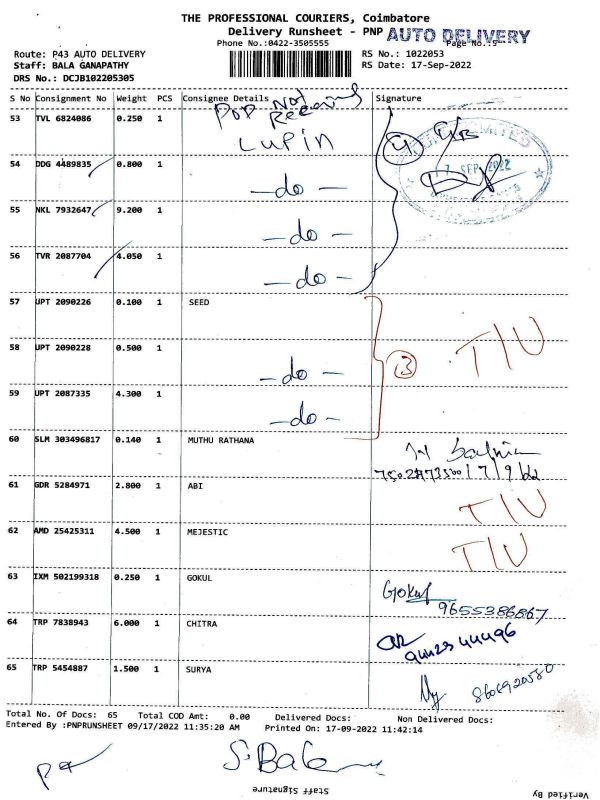 THE PROFESSIONAL COURIERS, Coimbatore
Delivery Runsheet - PNP AUTO DELIVERY
Phone No.:0422-3505555 Page No.:5
Route: P43 AUTO DELIVERY RS No.: 1022053
Staff: BALA GANAPATHY RS Date: 17-Sep-2022
DRS No.: DCJB102205305
S No Consignment No Weight PCS Consignee Details Signature
POD Not
53 TVL 6824086 0.250 1 Lupin
17 SEP 2022
54 DDG 4489835 0.800 1 -do-
55 NKL 7932647 9.200 1 -do-
56 TVR 2087704 4.050 1 -do-
57 UPT 2090226 0.100 1 SEED T/U
58 UPT 2090228 0.500 1 -do- 3
59 UPT 2087335 4.300 1 -do-
60 SLM 303496817 0.140 1 MUTHU RATHANA
61 GDR 5284971 2.800 1 ABI T/U
62 AMD 25425311 4.500 1 MEJESTIC T/U
63 IXM 502199318 0.250 1 GOKUL Gokul
9655386867
64 TRP 7838943 6.000 1 CHITRA
65 TRP 5454887 1.500 1 SURYA
Total No. Of Docs: 65 Total COD Amt: 0.00 Delivered Docs: Non Delivered Docs:
Entered By :PNPRUNSHEET 09/17/2022 11:35:20 AM Printed On: 17-09-2022 11:42:14
S. Bala
Staff Signature Verified By